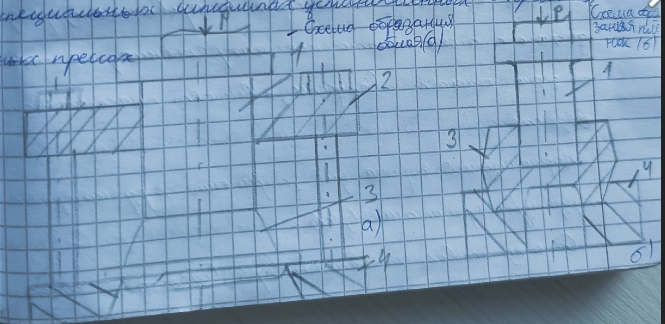 специальных штампах установленных
ных прессах
P
- Схема образания
облоя (а)
1
2
3
а)
4
P
Схема об
зания пле
нок (б)
1
3
4
б)